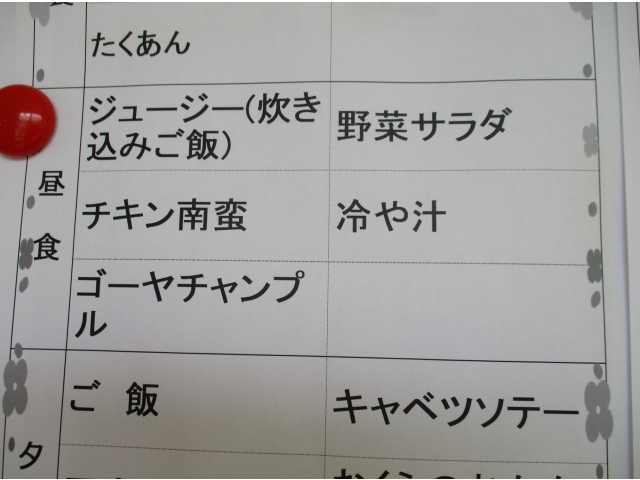 食
たくあん
昼食
ジュージー(炊き
込みご飯)
野菜サラダ
チキン南蛮
冷や汁
ゴーヤチャンプ
ル
夕
ご 飯
キャベツソテー